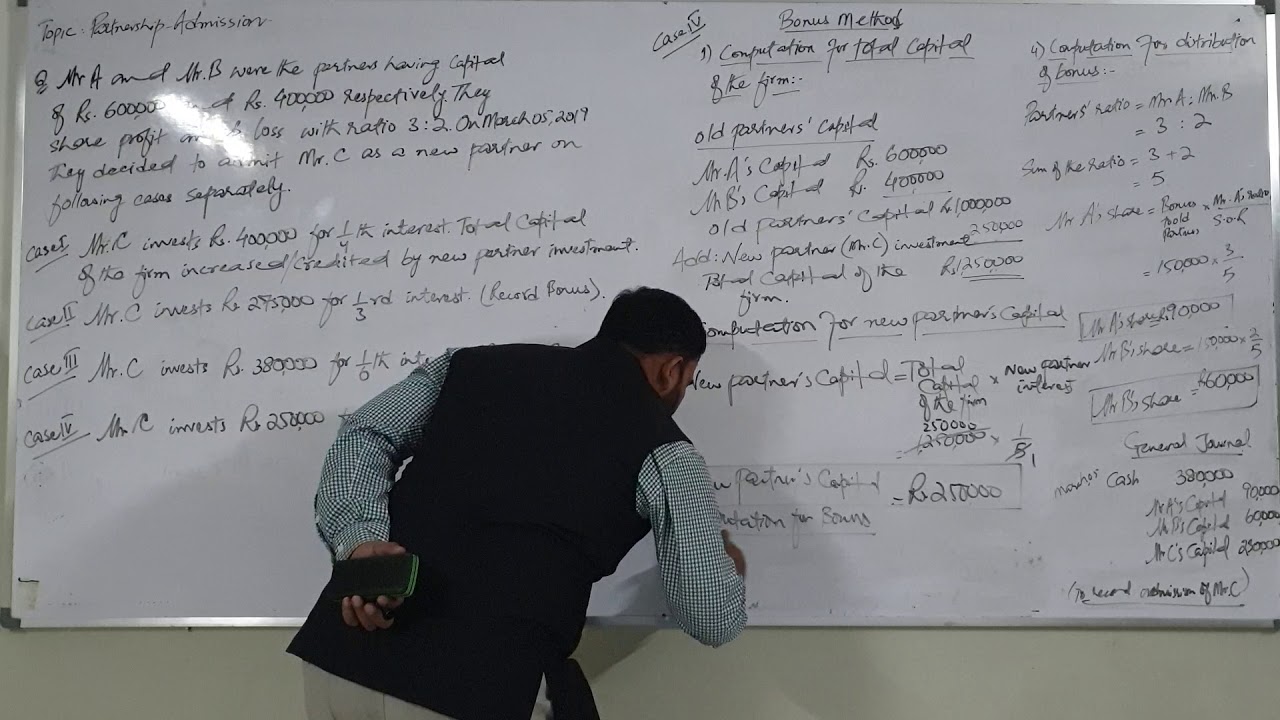 Topic: Partnership-Admission
Q Mr A and Mr. B were the partners having Capital
of Rs. 600,000 and Rs. 400,000 respectively. They
share profit loss with ratio 3:2. On March 05, 2019
They decided to admit Mr. C as a new partner on
following cases separately.
Case I Mr. C invests Rs. 400,000 for 1/4 th interest. Total Capital
of the firm increased/credited by new partner investment.
Case II Mr. C invests Rs 275,000 for 1/3 rd interest. (Record Bonus).
Case III Mr. C invests Rs. 380,000 for 1/6 th
Case IV Mr. C invests Rs 250,000
Case IV
Bonus Method
1) Computation for total Capital
of the firm:-
old partners' Capital
Mr. A's Capital Rs. 600,000
Mr B's Capital Rs. 400,000
old partners' Capital Rs 1000,000
Add: New partner (Mr. C) investment 250,000
Total Capital of the Rs 1,250,000
firm.
Computation for new partner's Capital
New partner's Capital = Total
Capital
of the firm
× New partner
interest
250000
= 1,250,000 × 1/5 1
partner's Capital = Rs 250,000
for Bonus
4) Computation for distribution
of bonus:-
Partners' ratio = Mr. A : Mr. B
= 3 : 2
Sum of the ratio = 3 + 2
= 5
Mr A's share = Bonus to old Partners × Mr. A's Ratio / S.O.R
= 150,000 × 3/5
Mr A's share = 90,000
Mr B's share = 150,000 × 2/5
Mr B's share = Rs 60,000
General Journal
March 05 Cash 380,000
Mr A's Capital 90,000
Mr B's Capital 60,000
Mr C's Capital 230,000
(To record admission of Mr. C)